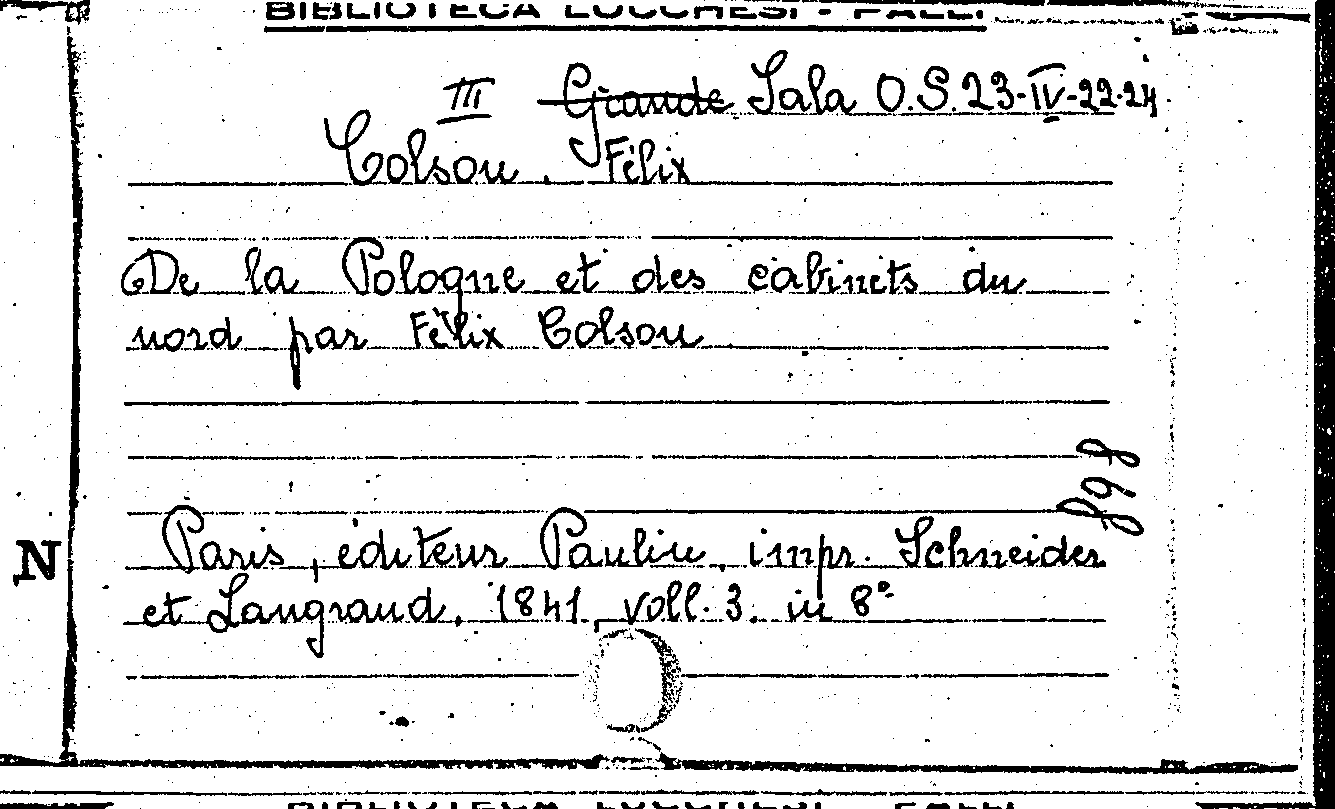 BIBLIOTECA LUCCHESI - PALLI
III Grande Sala O.S. 23-IV-22-24
Colson, Félix
De la Pologne et des cabinets du
nord par Félix Colson
898
N
Paris, éditeur Paulin, impr. Schneider
et Langrand, 1841, voll. 3. in 8°
BIBLIOTECA LUCCHESI - PALLI